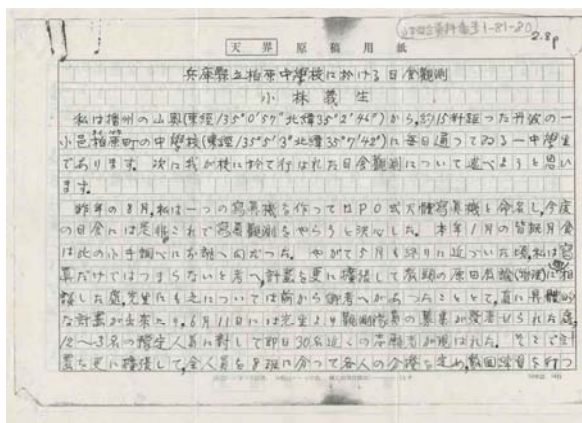 山本天文台資料番号1-81-80
2.8p
天界原稿用紙
兵庫縣立柏原中學校に於ける日食觀測
小林義生
私は播州の山奥(東經135°0′57″北緯35°2′46″)から,約15粁距つた丹波の一
小邑柏原町の中學校(東經135°5′3″北緯35°7′42″)に毎日通つてゐる一中學生
であります。次に我が校に於て行はれた日食觀測について述べようと思い
ます。
昨年の8月,私は一つの寫眞機を作つて PO式天體寫眞機と命名し,今度
の日食には是非これで寫眞觀測をやらうと決心した。本年1月の皆既月食
は此の小手調べにお誂へ向だつた。やがて5月も終りに近づいた頃,私は寫
眞だけではつまらないと考へ,計畫を更に擴張して 原田教諭(物理)に相
談した處,先生にも之については前から御考へがあつたことゝて,直に具體的
な計畫が出來上り,6月11日には先生より觀測隊員の募集が發表せられた處,
12〜3名の豫定人員に對して即日30名近くの志願者が現はれた。そこで計
畫を更に擴張して,全人員を8班に分つて各人の分擔を定め,數回練習を行つ